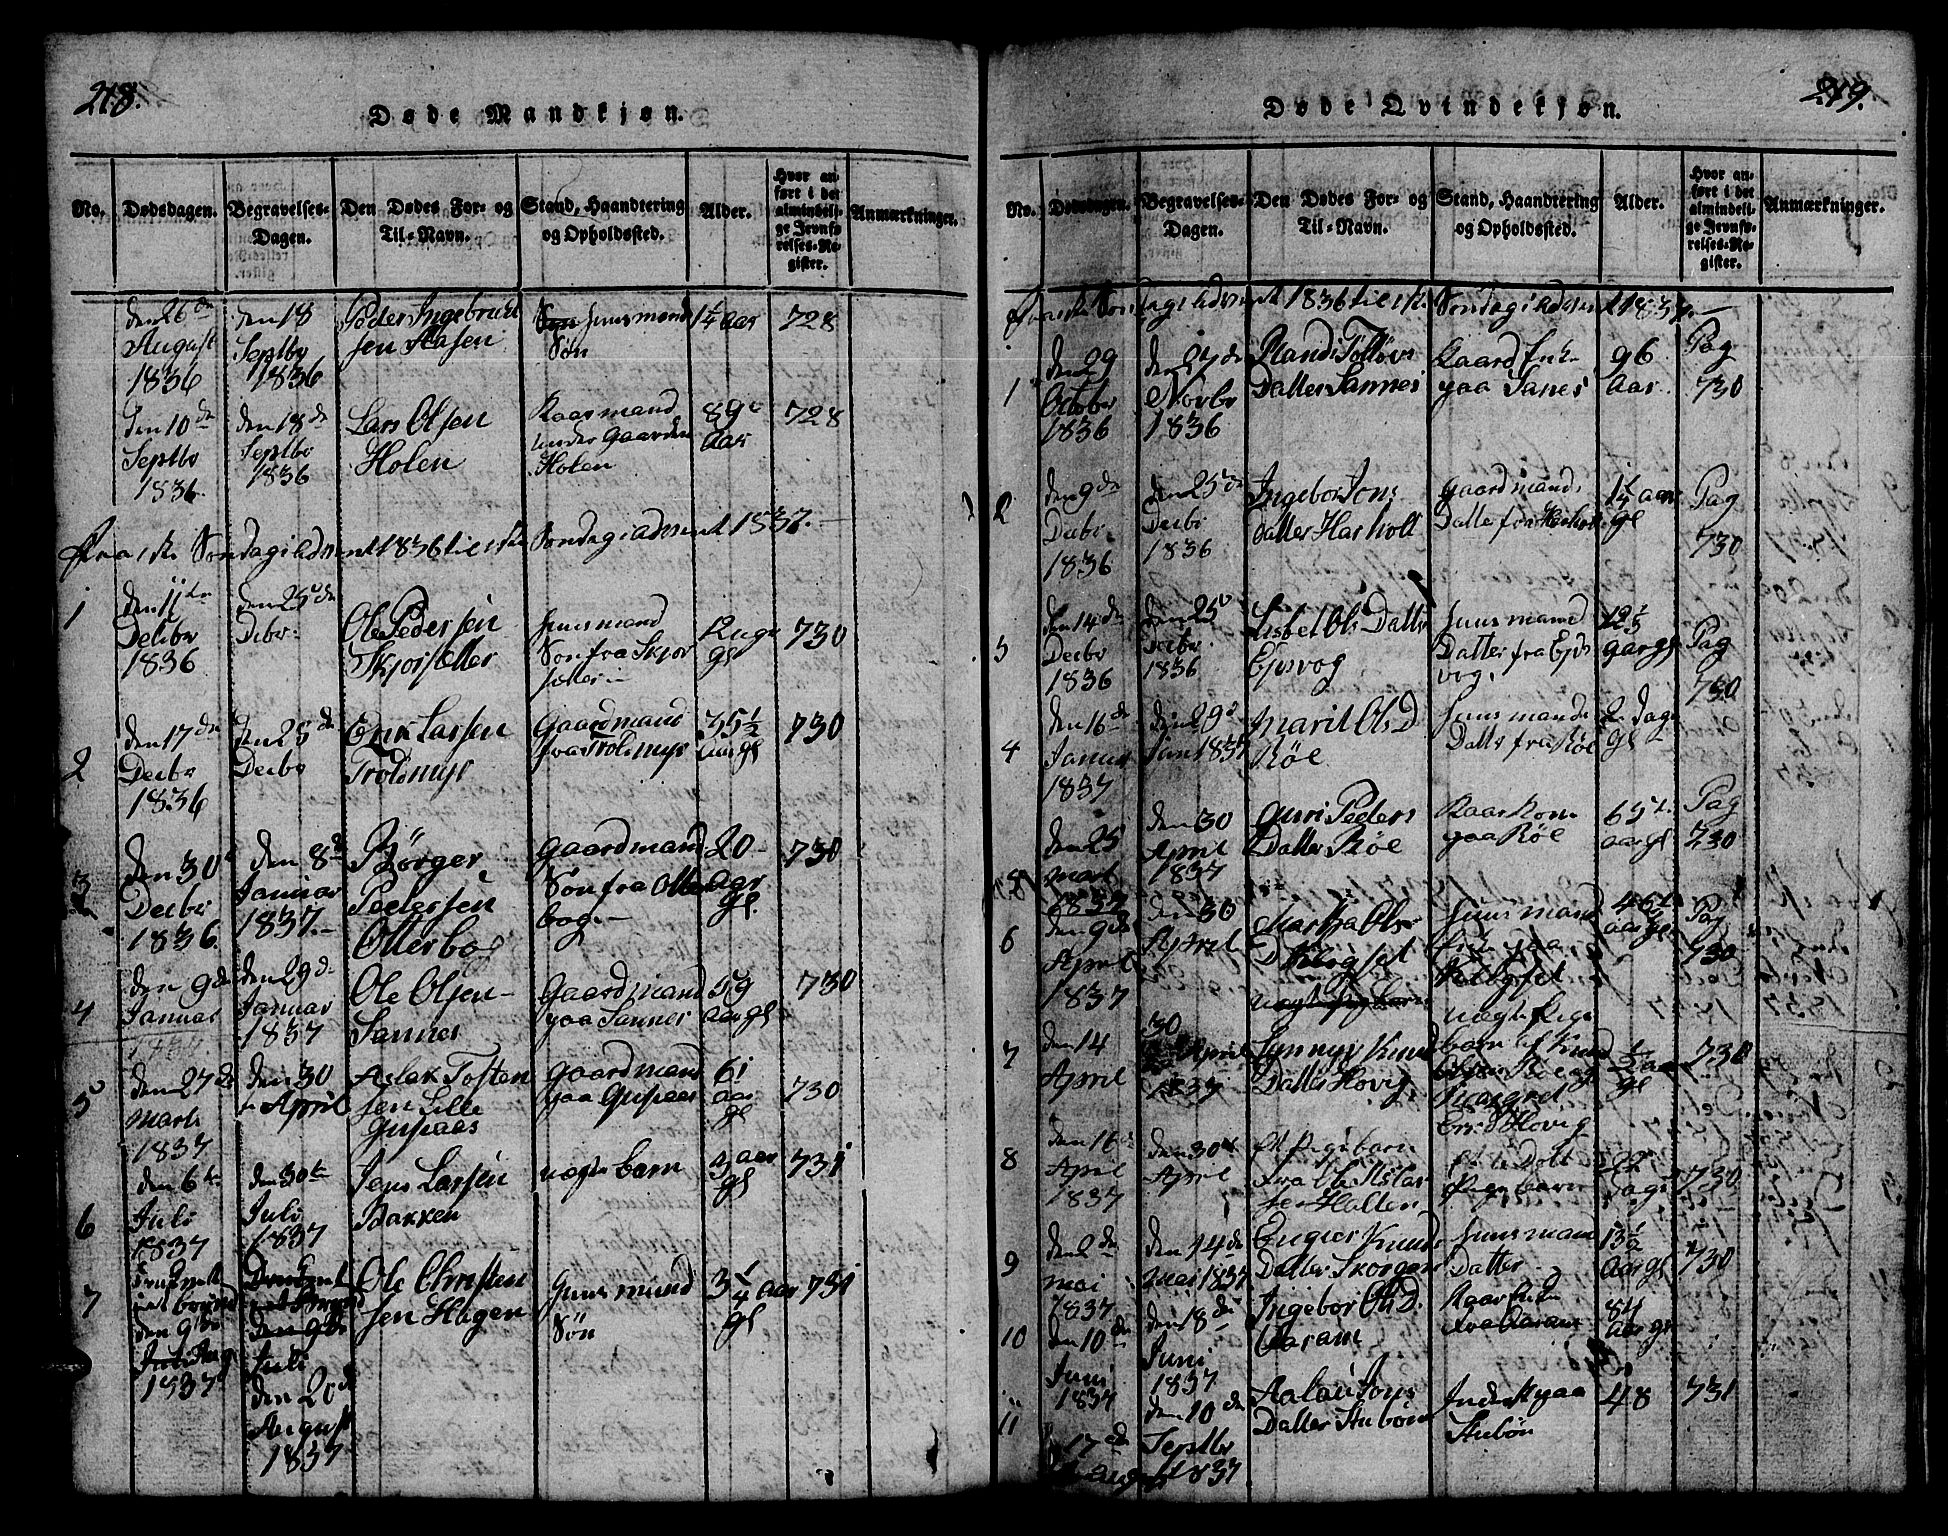 218.
Døde Mandkjøn.
No.
Dødsdagen.
Begravelses-
Dagen.
Den Dødes For- og
Til-Navn.
Stand, Haandtering
og Opholdssted.
Alder.
Hvor an-
ført i det
almindeli-
ge Jevnfø-
relses-Re-
gister.
Anmærkninger.
den 26de
August
1836
den 18
Septbr
1836
Peder Ingebrigt
sen
Huusmand
Søn
1 1/4 Aar
728
den 10de
Septbr
1836.
den 18de
Septbr
1836
Lars Olsen
Holen
Kaarmand
under Gaarden
Holen
89
Aar
728
Fra 1ste Søndag i Advent 1836 til 1ste Søndag i Advent 1837.-
1
den 11te
Decbr
1836
den 25de
Decbr
Ole Pedersen
Skjørsætter
Huusmand
Søn fra Skjør
sætter
12 uger
gl
730
2
den 17de
Decbr
1836
den 25de
Decbr
Erik Larsen
Troldmyr
Gaardmand
fra Troldmyr
35 1/2
Aar gl
730
3
den 30
Decbr
1836.
den 8de
Januar
1837.-
Børger
Pedersen
Otterbog
Gaardmand
Søn fra Otter
bog.-
20
Aar
gl.
730
4
den 9de
Januar
den 29de
Januar
1837
Ole Olsen
Sanner
Gaardmand
paa Sanner
59
Aar gl
730
5
den 27de
Marts
1837
den 30
April
Aslak Tosten
sen Lille
Gusiaas
Gaardmand
paa Gusiaas
61
Aar
gl
730
6
den 6te
Juli
1837
den 30te
Juli
1837
Jens Larsen
Bakken
uægte barn
3 aar
gl
731
7
den 9de
Aug
1837
den 20de
August
1837
Ole Christen
sen Hagen
Huusmand
Søn
3 1/4 Aar
gl
731
219.
Døde Qvindekjøn.
No.
Dødsdagen.
Begravelses-
Dagen.
Den Dødes For- og
Til-Navn.
Stand, Haandtering
og Opholdssted.
Alder.
Hvor an-
ført i det
almindeli-
ge Jevnfø-
relses-Re-
gister.
Anmærkninger.
Fra 1ste Søndag i Advent 1836 til 1ste Søndag i Advent 1837.-
1
den 29
October
1836
den 27de
Novbr
1836
Randi
Datter Sannes
Kaard Enke
paa Sanes
96
Aar
Pag
730
2
den 9de
Decbr
1836
den 25de
Decbr
1836
Ingebor Jons
Datter Harholt
Gaardmands
Datter fra Harholt
1 1/4 aar
gl
Pag
730
3
den 14de
Decbr
1836
den 25
Decbr
1836
Lisbet Ols Datter
Ejsvog
Huusmand
Datter fra Ejds
vog.
aar gl
Pag
730
4
den 16de
Januar
1837
den 29de
Jan 1837
Marit Ols D
Röe
Huusmands
Datter fra Röe
2 Dage
gl
5
den 25
Mart
1837
den 30
April
1837
Guri Peders
Datter Röe
Kaarkone
paa Röe
65
aar gl
Pag
730
6
den 9de
April
1837
den 30
April
Martha Ols
D
Huusmand
paa
46
aar gl
Pag
730
7
den 14
April
30
April
1837
Synnøv Knud
Datter Hovig
uægte Pige
barn af Knud
Röe og
Margret
Hovig
aar
gl
730
8
den 16de
April
1837
den 30te
April
Et Pigebarn
fra Ole Aslak
sen Holten
Pigebarn
Dage
730
9
den 2de
Mai
1837
den 14de
Mai 1837
Engier Knuds
Datter Skorgen
Huusmand
Datter
13 1/2
Aar gl
730
10
den 10de
Juni
1837
den 18de
Juni
1837
Ingebor Ols D.
Aaram
Kaar Enke
fra Aaram
84
Aar gl
11
17de
August
den 10de
Septbr
1837
Jons
Datter Stubön
Inderst paa
Stubön
48
731